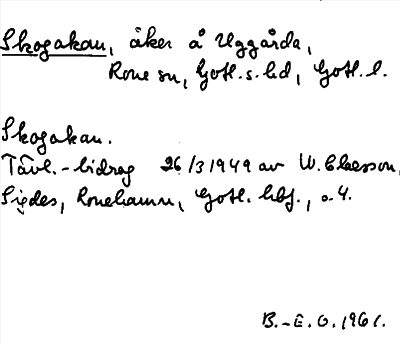 Skogakan, åker å Uggårda,
Rone sn, Gotl. s. hd, Gotl. l.
Skogakan.
Tävl.-bidrag 26/3 1949 av W. Claesson,
Sigdes, Ronehamn, Gotl. hbf., s. 4.
B.-E. O. 1961.